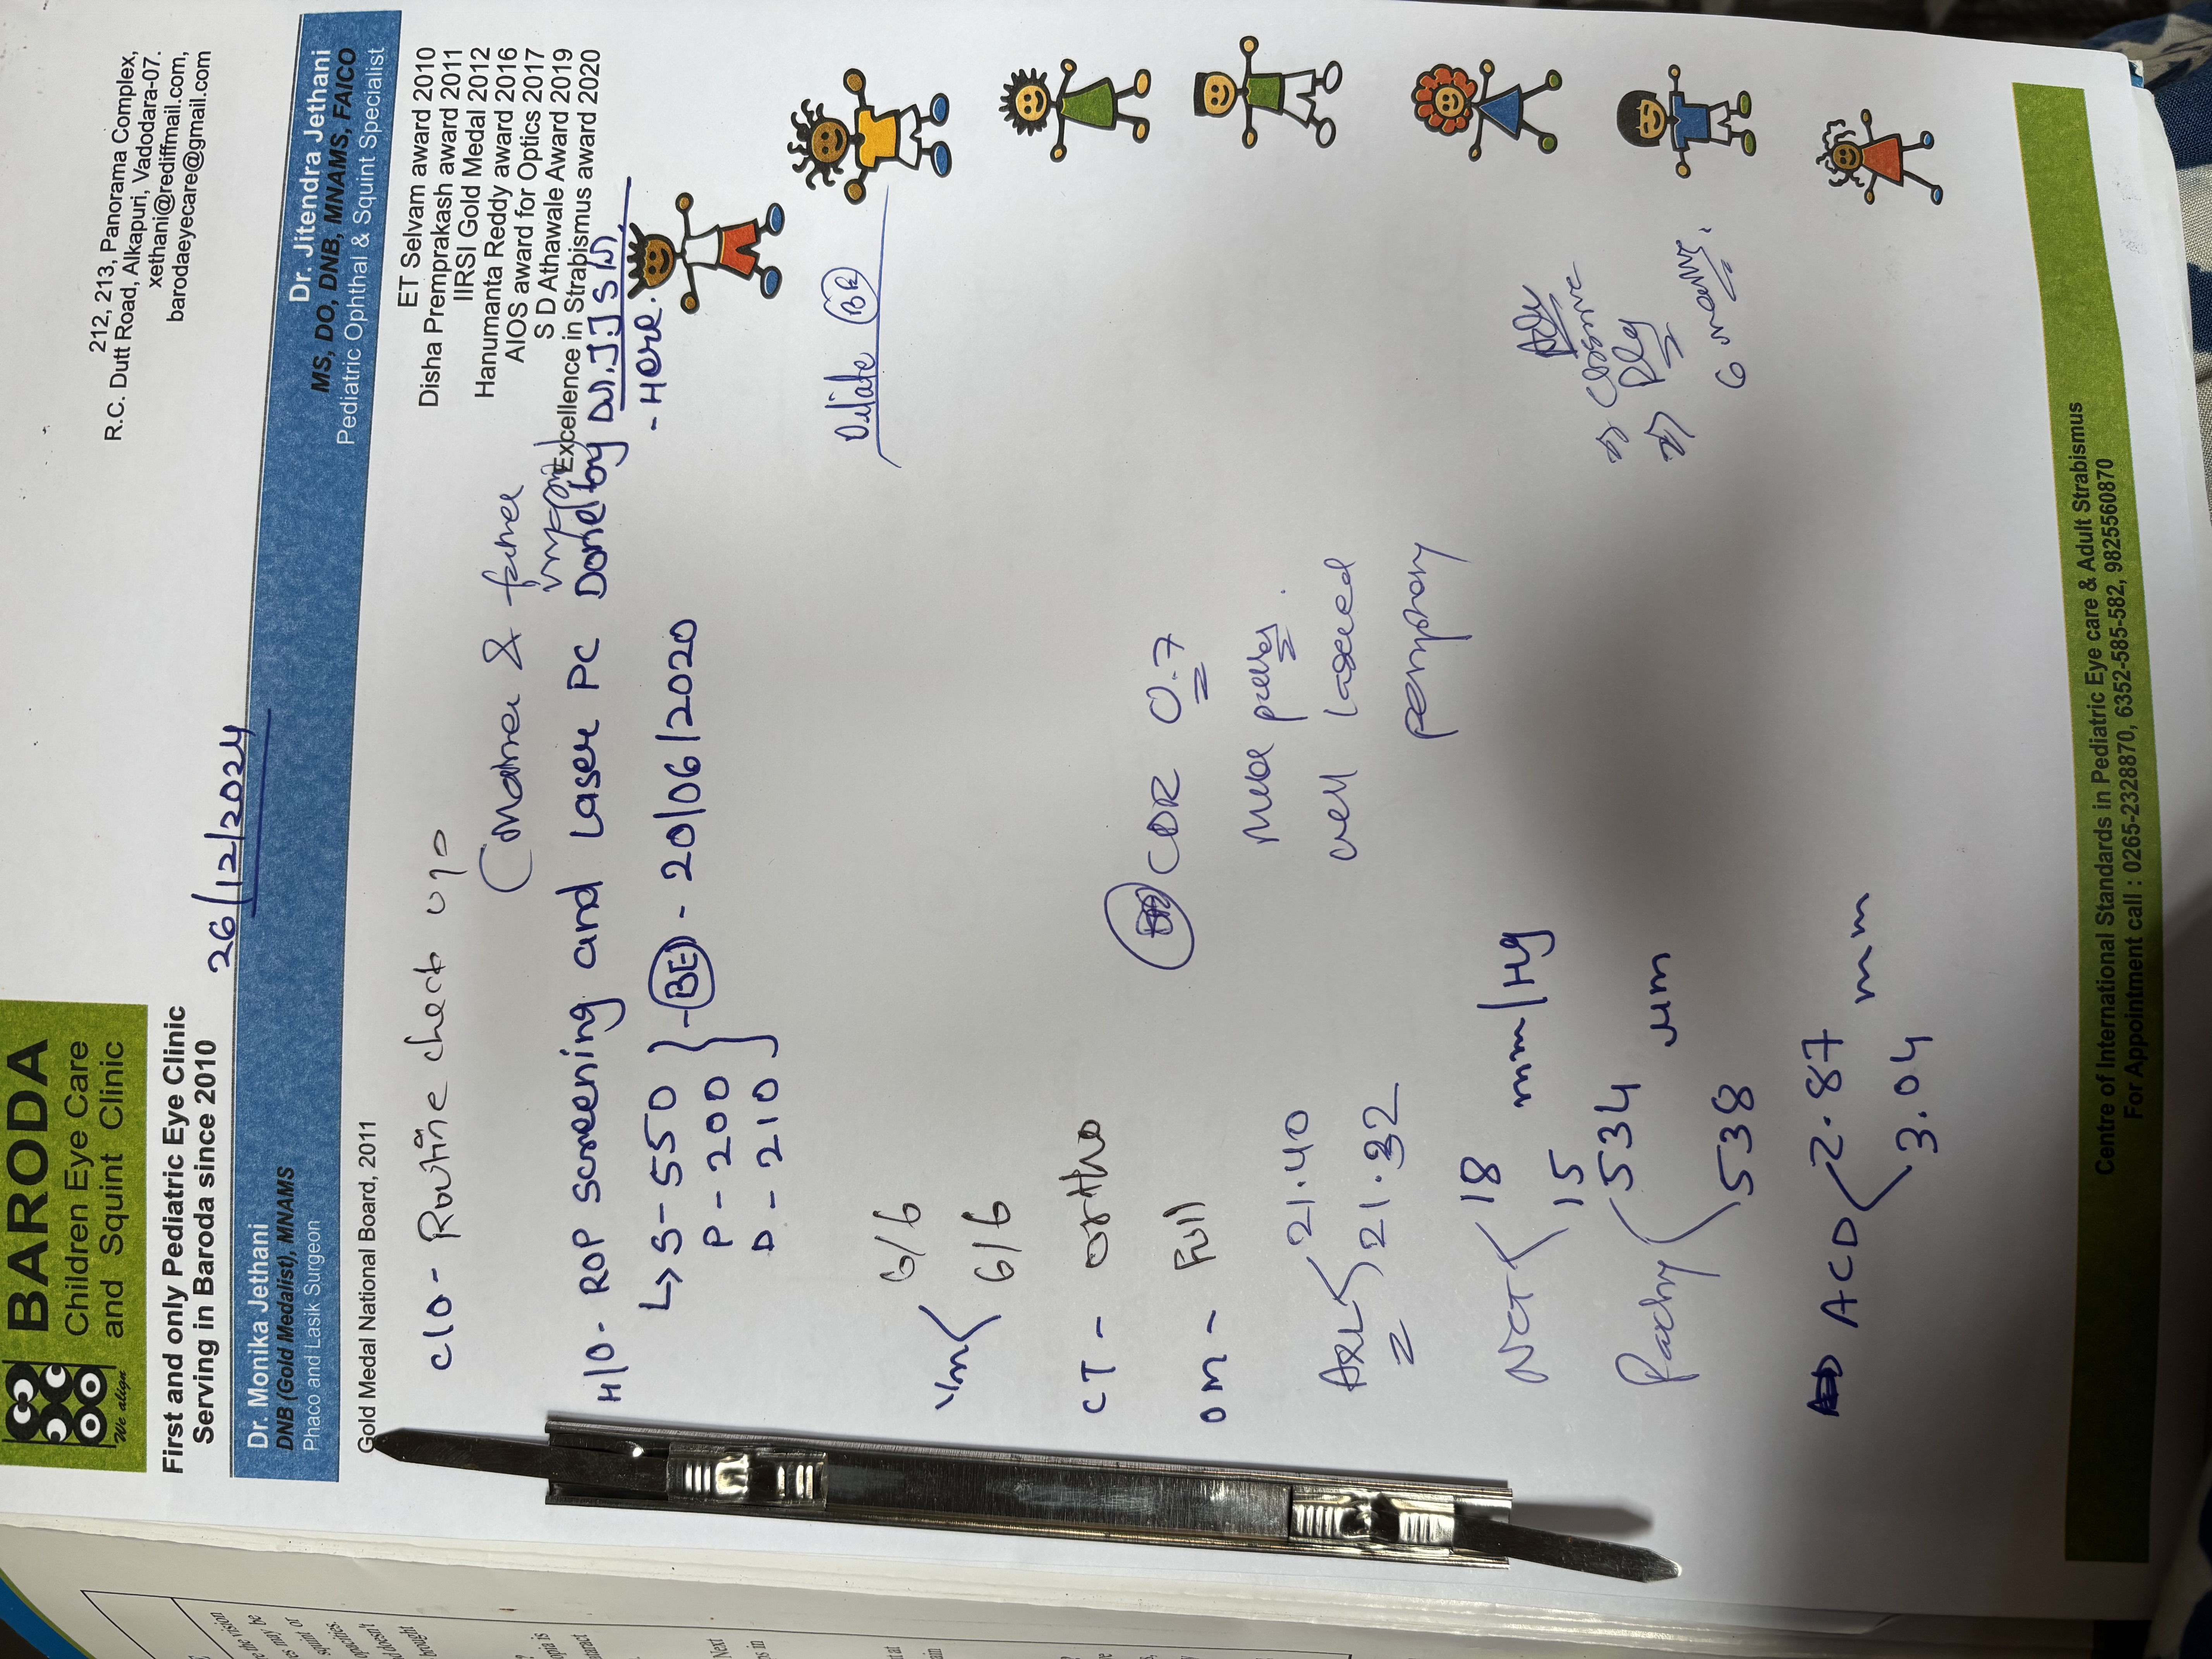 BARODA
Children Eye Care
and Squint Clinic
We align
First and only Pediatric Eye Clinic
Serving in Baroda since 2010
212, 213, Panorama Complex,
R.C. Dutt Road, Alkapuri, Vadodara-07.
xethani@rediffmail.com,
barodaeyecare@gmail.com
26/12/2024
Dr. Monika Jethani
DNB (Gold Medalist), MNAMS
Phaco and Lasik Surgeon
Dr. Jitendra Jethani
MS, DO, DNB, MNAMS, FAICO
Pediatric Ophthal & Squint Specialist
Gold Medal National Board, 2011
ET Selvam award 2010
Disha Premprakash award 2011
IIRSI Gold Medal 2012
Hanumanta Reddy award 2016
AIOS award for Optics 2017
S D Athawale Award 2019
Excellence in Strabismus award 2020
C/O - Routine check up
(Mother & father
H/O - ROP screening and Laser PC Done by Dr. JJ Sir.
- Here.
↳ S - 550
P - 200
D - 210
- BE - 20/06/2020
Dilate BE
Vn
6/6
6/6
CT - ortho
OM - Full
CDR 0.7
well lasered
periphery
AXL
21.40
21.32
NCT
18
15
mm/Hg
Pachy
534
538
µm
Adv
6 months.
ACD
2.87
3.04
mm
Centre of International Standards in Pediatric Eye care & Adult Strabismus
For Appointment call : 0265-2328870, 6352-585-582, 9825560870
e the vision
es may be
squint or
opacities.
d doesn't
brought
opia is
ataract
Next
ps in